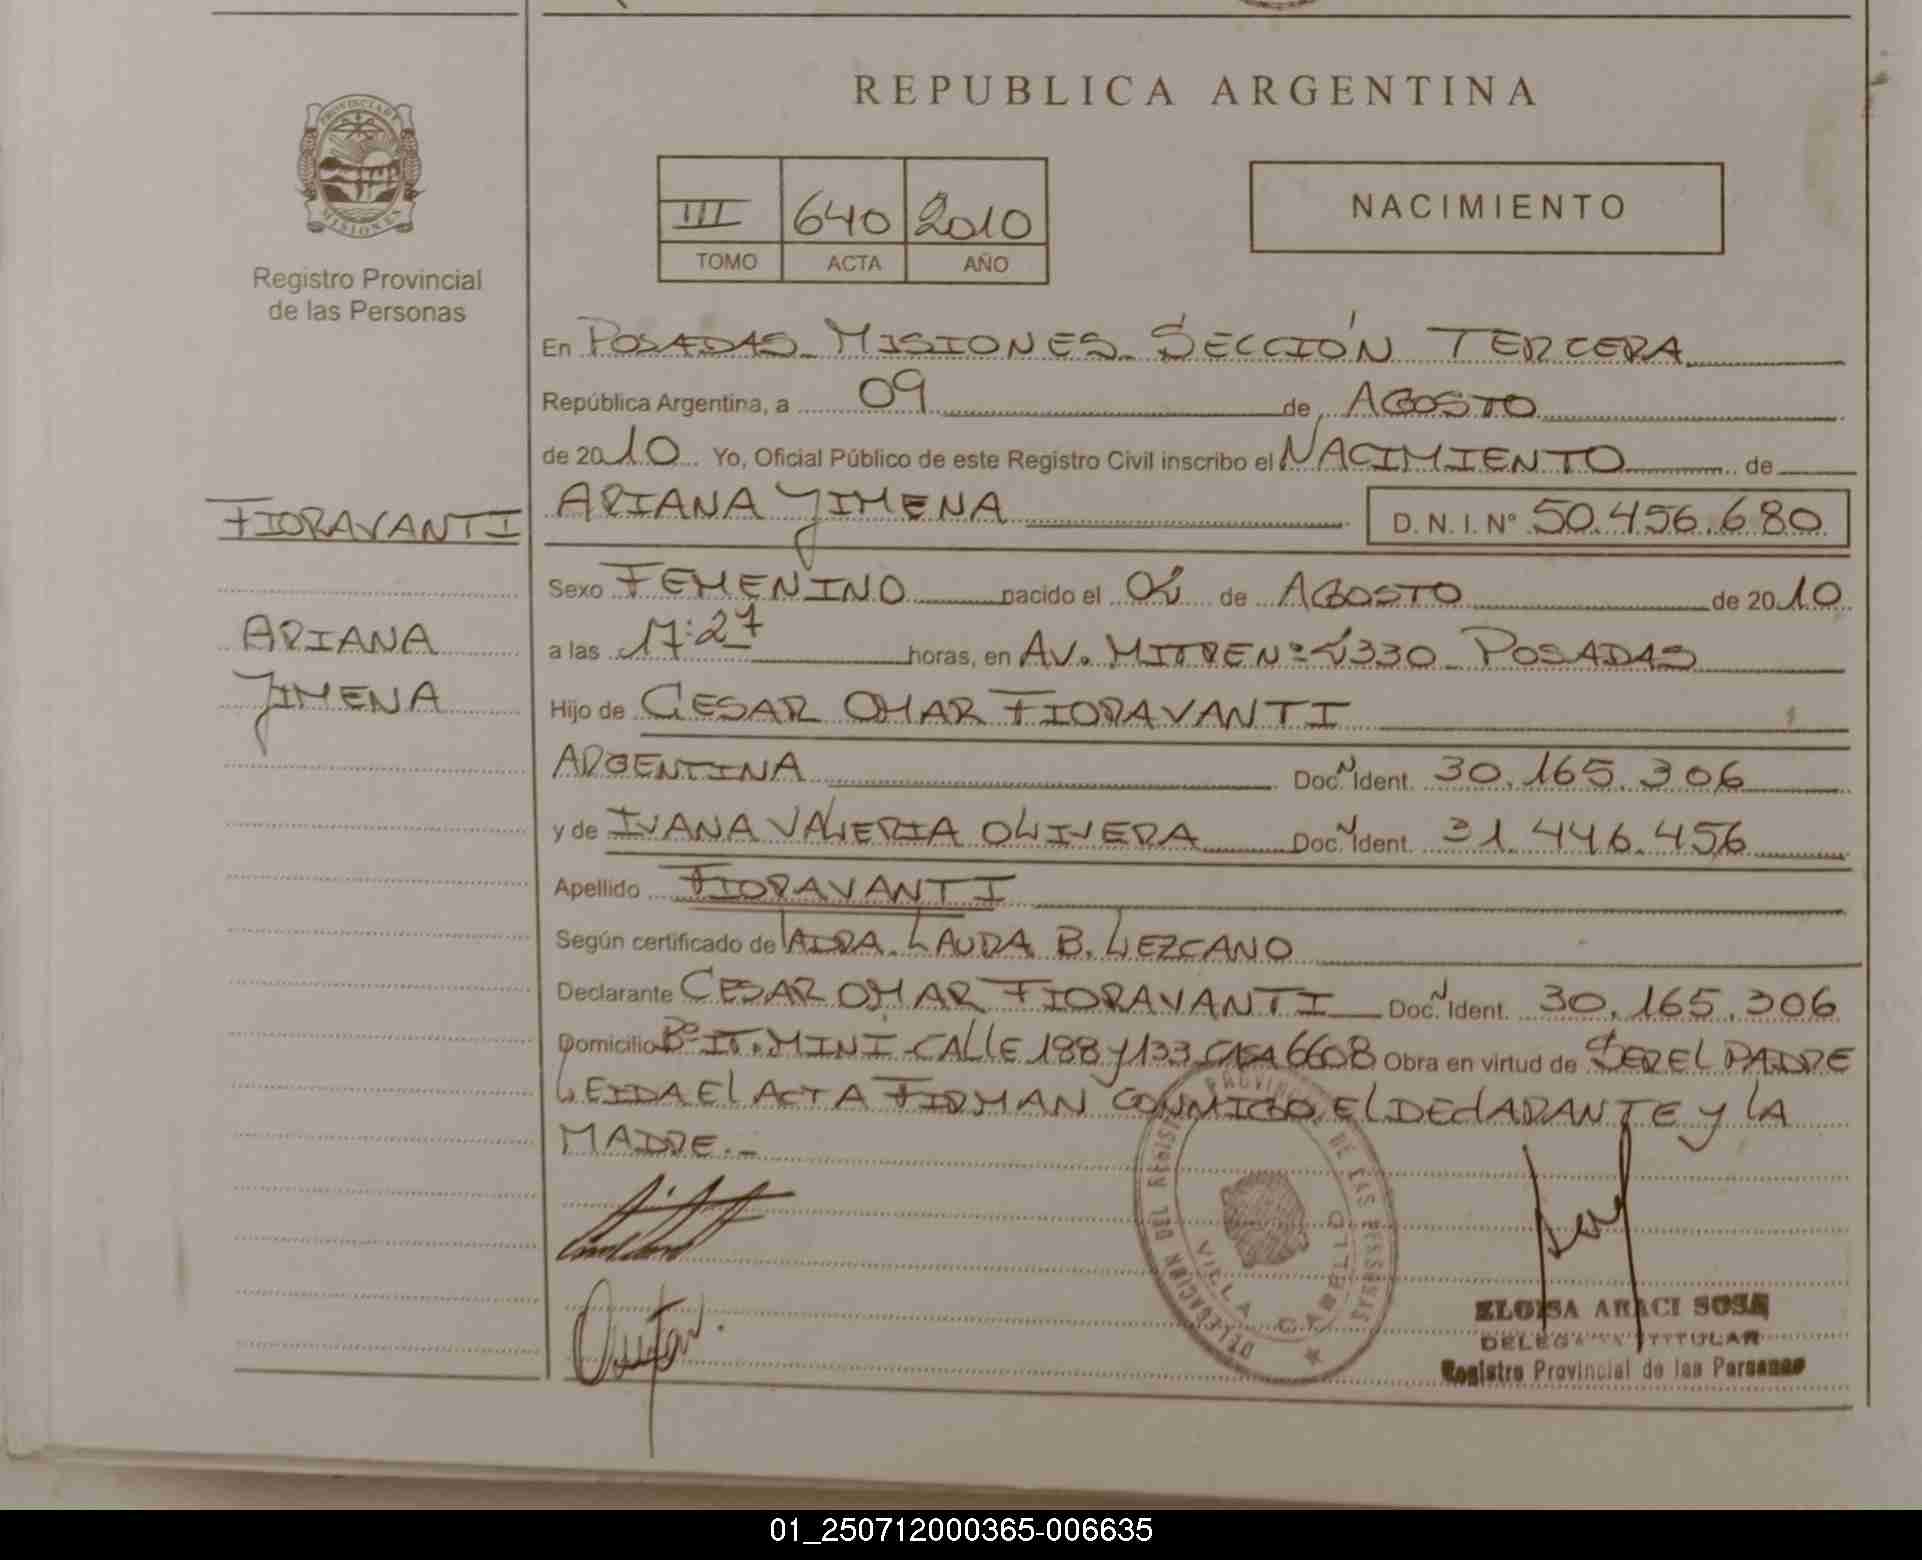 REPUBLICA ARGENTINA
PROVINCIA DE MISIONES
Registro Provincial
de las Personas
III 640 2010
TOMO ACTA AÑO
NACIMIENTO
En POSADAS MISIONES SECCIÓN TERCERA
República Argentina, a 09 de AGOSTO
de 2010 Yo, Oficial Público de este Registro Civil inscribo el NACIMIENTO de
FIORAVANTI
ARIANA JIMENA D.N.I. Nº 50.456.680
Sexo FEMENINO nacido el 02 de AGOSTO de 2010
ARIANA
JIMENA
a las 17:27 horas, en AV. MITRE Nº 2330 POSADAS
Hijo de CESAR OMAR FIORAVANTI
ARGENTINA Doc. Ident. 30.165.306
y de IVANA VALERIA OLIVERA Doc. Ident. 31.446.456
Apellido FIORAVANTI
Según certificado de LAURA B. LEZCANO
Declarante CESAR OMAR FIORAVANTI Doc. Ident. 30.165.306
Domicilio Bº IT. MINI CALLE 188 y 133 CASA 6608 Obra en virtud de SER EL PADRE
LEIDA El ACTA FIRMAN CONMIGO El DEClARANTE y lA
MADRE.-
DELEGACION DEL REGISTRO PROVINCIAL DE LAS PERSONAS
VILLA CABELLO
ELOISA ARACI SOSA
DELEGADA TITULAR
Registro Provincial de las Personas
01_250712000365-006635